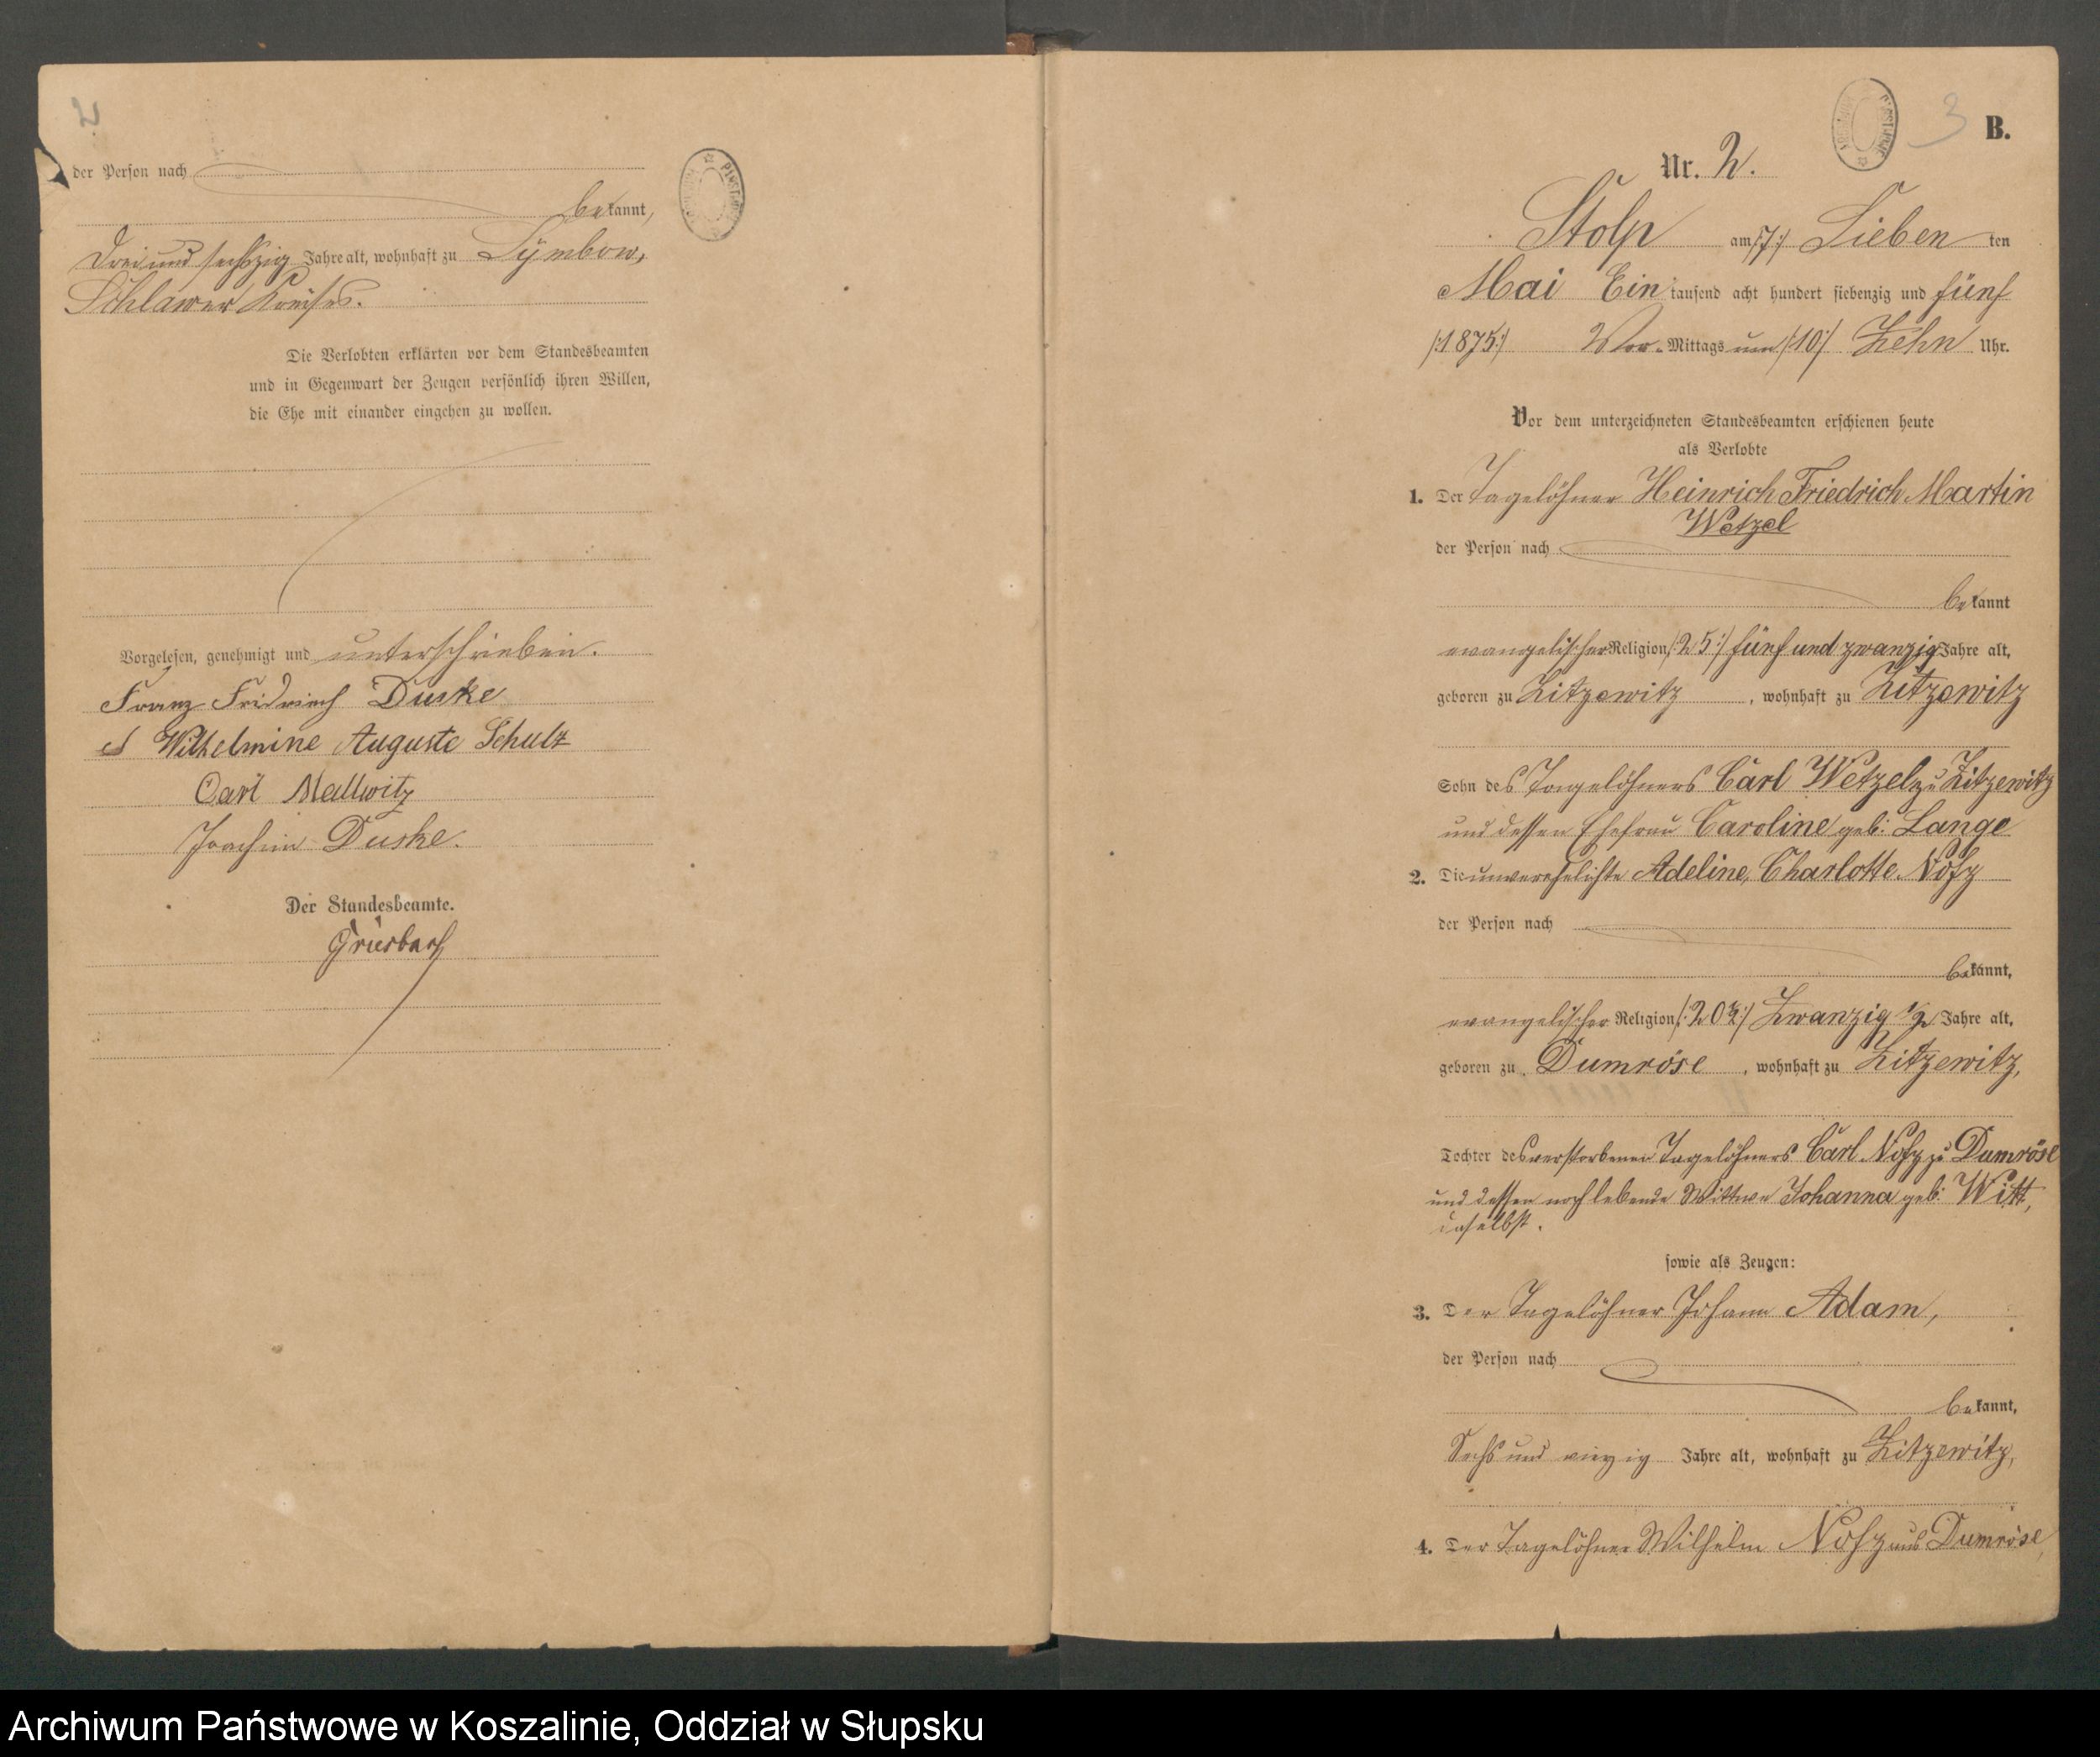 2
der Person nach
bekannt,
drei und sechszig Jahre alt, wohnhaft zu Symbow,
Schlawer Kreises.
Die Verlobten erklärten vor dem Standesbeamten
und in Gegenwart der Zeugen persönlich ihren Willen,
die Ehe mit einander eingehen zu wollen.
Vorgelesen, genehmigt und unterschrieben.
Franz Fridrich Duske
Wilhelmine Auguste Schulz
Carl Mallwitz
Joachim Duske.
Der Standesbeamte.
Griesbach
3 B.
Nr. 2.
Stolp am /:7:/ Sieben ten
Mai Ein tausend acht hundert siebenzig und fünf
/:1875:/ Vor-Mittags um /:10:/ Zehn Uhr.
Vor dem unterzeichneten Standesbeamten erschienen heute
als Verlobte
1. Der Tagelöhner Heinrich Friedrich Martin
Wetzel
der Person nach
bekannt
evangelischer Religion /:25:/ fünf und zwanzig Jahre alt,
geboren zu Zitzewitz, wohnhaft zu Zitzewitz
Sohn des Tagelöhners Carl Wetzel zu Zitzewitz
und dessen Ehefrau Caroline geb: Lange
2. Die unverehelichte Adeline, Charlotte Nofz
der Person nach
bekannt,
evangelischer Religion /:20½:/ Zwanzig ½ Jahre alt,
geboren zu Dumröse, wohnhaft zu Zitzewitz,
Tochter des verstorbenen Tagelöhners Carl Nofz zu Dumröse
und dessen noch lebende Wittwe Johanna geb: Witt,
daselbst.
sowie als Zeugen:
3. Der Tagelöhner Johann Adam,
der Person nach
bekannt,
Sechs und vierzig Jahre alt, wohnhaft zu Zitzewitz,
4. Der Tagelöhner Wilhelm Nofz aus Dumröse,
Archiwum Państwowe w Koszalinie, Oddział w Słupsku